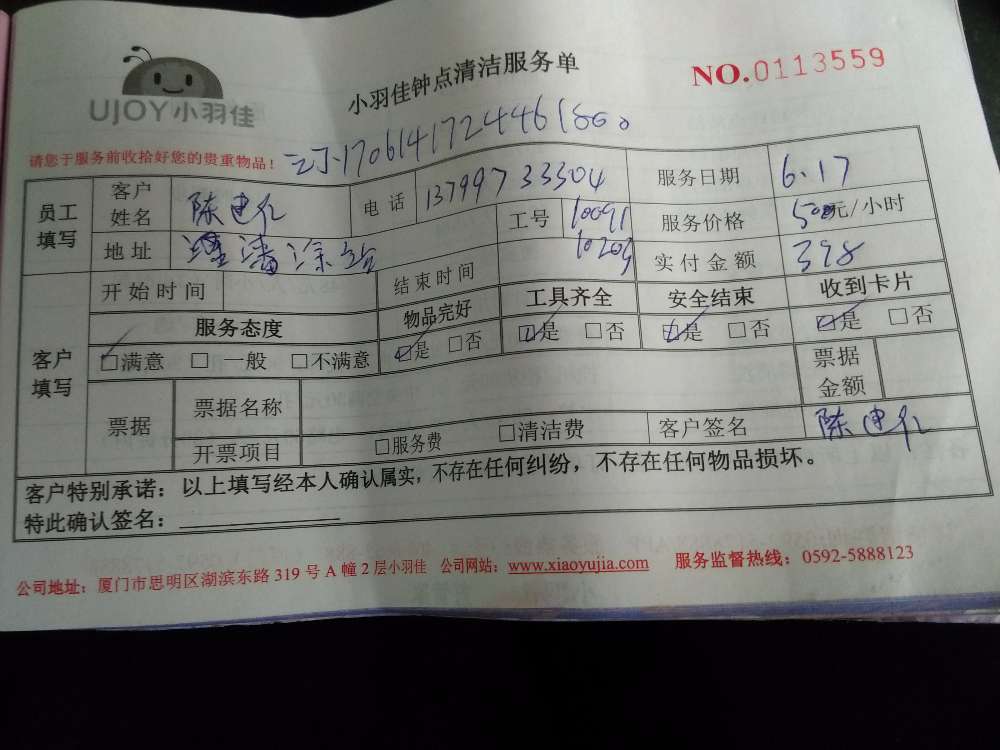 UJOY小羽佳
小羽佳钟点清洁服务单
NO.0113559
请您于服务前收拾好您的贵重物品！
170614172446180
员工填写 客户姓名 陈建 电话 13799733304 服务日期 6.17
地址 工号 10091 服务价格 元/小时
10209 实付金额 398
开始时间 结束时间
客户填写 服务态度 物品完好 工具齐全 安全结束 收到卡片
□满意 □一般 □不满意 □是 □否 □是 □否 □是 □否 □是 □否
票据 票据名称 票据金额
开票项目 □服务费 □清洁费 客户签名 陈建
客户特别承诺：以上填写经本人确认属实，不存在任何纠纷，不存在任何物品损坏。
特此确认签名：
公司地址：厦门市思明区湖滨东路319号A幢2层小羽佳 公司网站：www.xiaoyujia.com 服务监督热线：0592-5888123